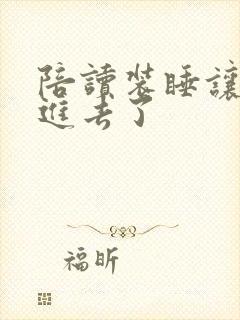 陪讀裝睡讓
進去了
福昕